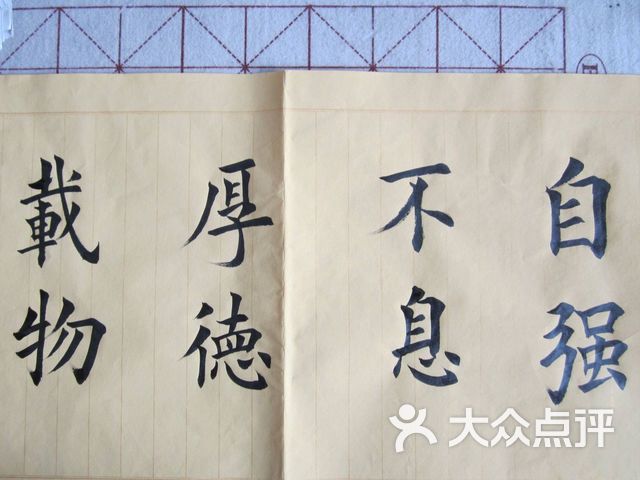 自强
不息
厚德
載物
大众点评